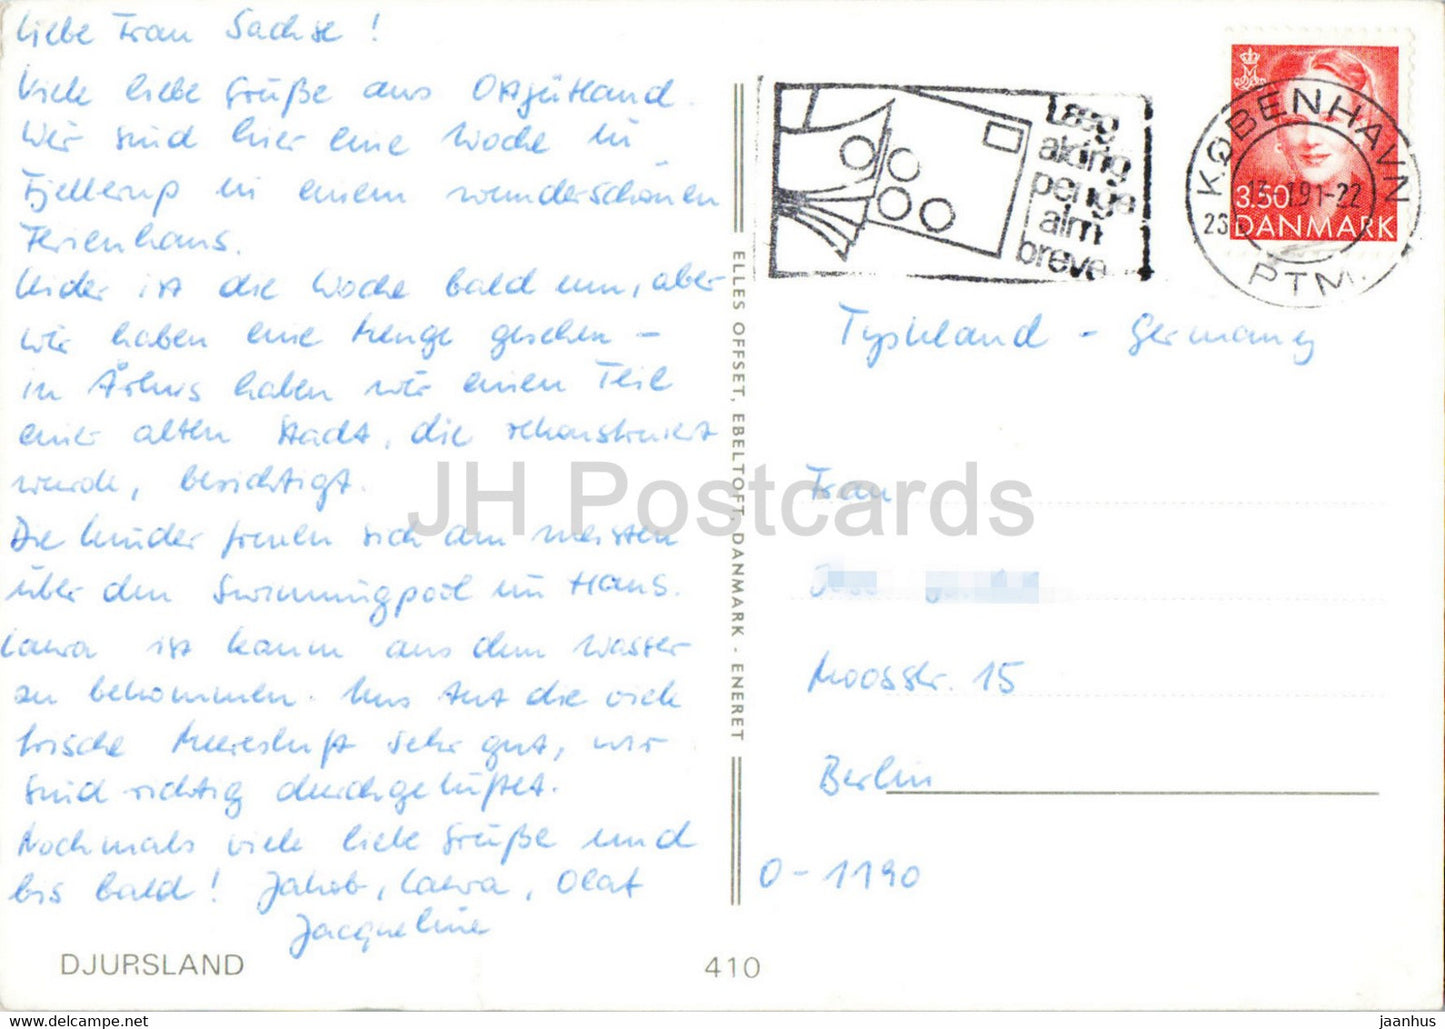 Liebe Frau Sachse!
Viele liebe Grüße aus Ostjütland.
Wir sind hier eine Woche in
Fjellerup in einem wunderschönen
Ferienhaus.
Leider ist die Woche bald um, aber
wir haben eine Menge gesehen –
in Århus haben wir einen Teil
einer alten Stadt, die rekonstruiert
wurde, besichtigt.
Die Kinder freuen sich am meisten
über den Swimmingpool im Haus.
Laura ist kaum aus dem Wasser
zu bekommen. Uns tut die viele
frische Meeresluft sehr gut, wir
sind richtig durchgelüftet.
Nochmals viele liebe Grüße und
bis bald! Jakob, Laura, Olaf
Jacqueline
DJURSLAND
410
ELLES OFFSET, EBELTOFT, DANMARK - ENERET
Læg
aldrig
penge
alm
breve
KØBENHAVN
13. 91-22
PTM.
3.50
DANMARK
Tyskland - Germany
Frau
Moosstr. 15
Berlin
O-1190
JH Postcards
www.delcampe.net
jaanhus